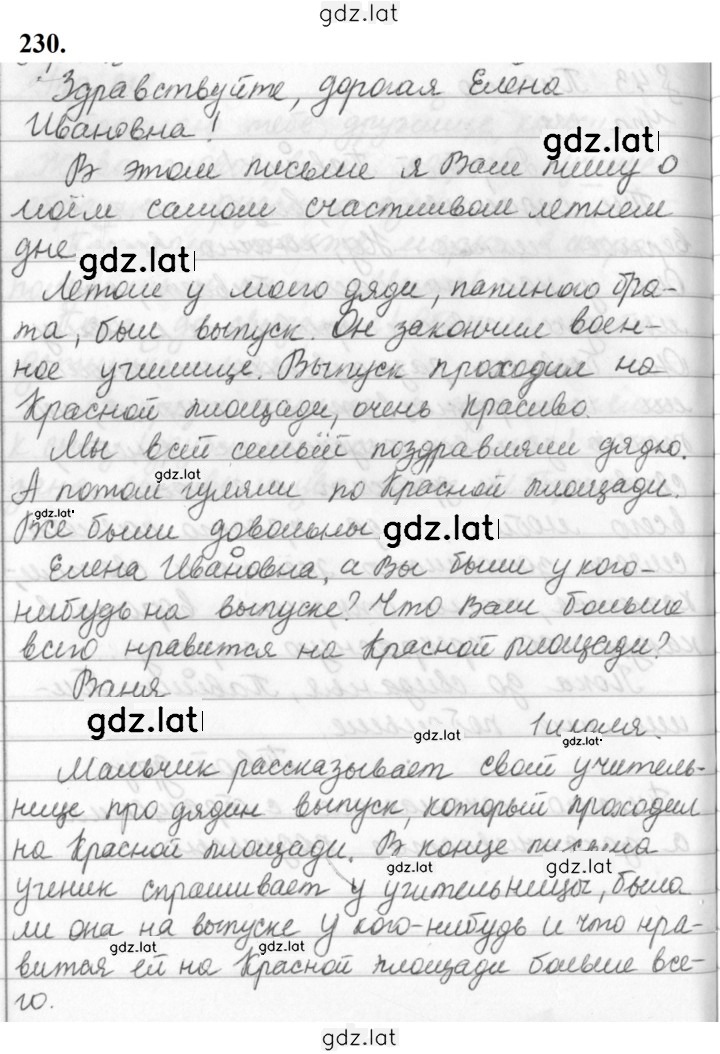 gdz.lat
230.
Здравствуйте, дорогая Елена
Ивановна!
gdz.lat
В этом письме я Вам пишу о
моём самом счастливом летнем
дне
gdz.lat
Летом у моего дяди, папиного бра-
та, был выпуск. Он закончил воен-
ное училище. Выпуск проходил на
Красной площади, очень красиво.
Мы всей семьёй поздравляли дядю.
gdz.lat
А потом гуляли по Красной площади.
gdz.lat
Все были довольны
gdz.lat
Елена Ивановна, а Вы были у кого-
нибудь на выпуске? Что Вам больше
всего нравится на Красной площади?
Ваня
gdz.lat
gdz.lat
1 июля.
gdz.lat
Мальчик рассказывает своей учитель-
нице про дядин выпуск, который проходил
на Красной площади. В конце письма
gdz.lat
gdz.lat
ученик спрашивает у учительницы, была
ли она на выпуске у кого-нибудь и что нра-
gdz.lat
gdz.lat
вится ей на Красной площади больше все-
го.
gdz.lat